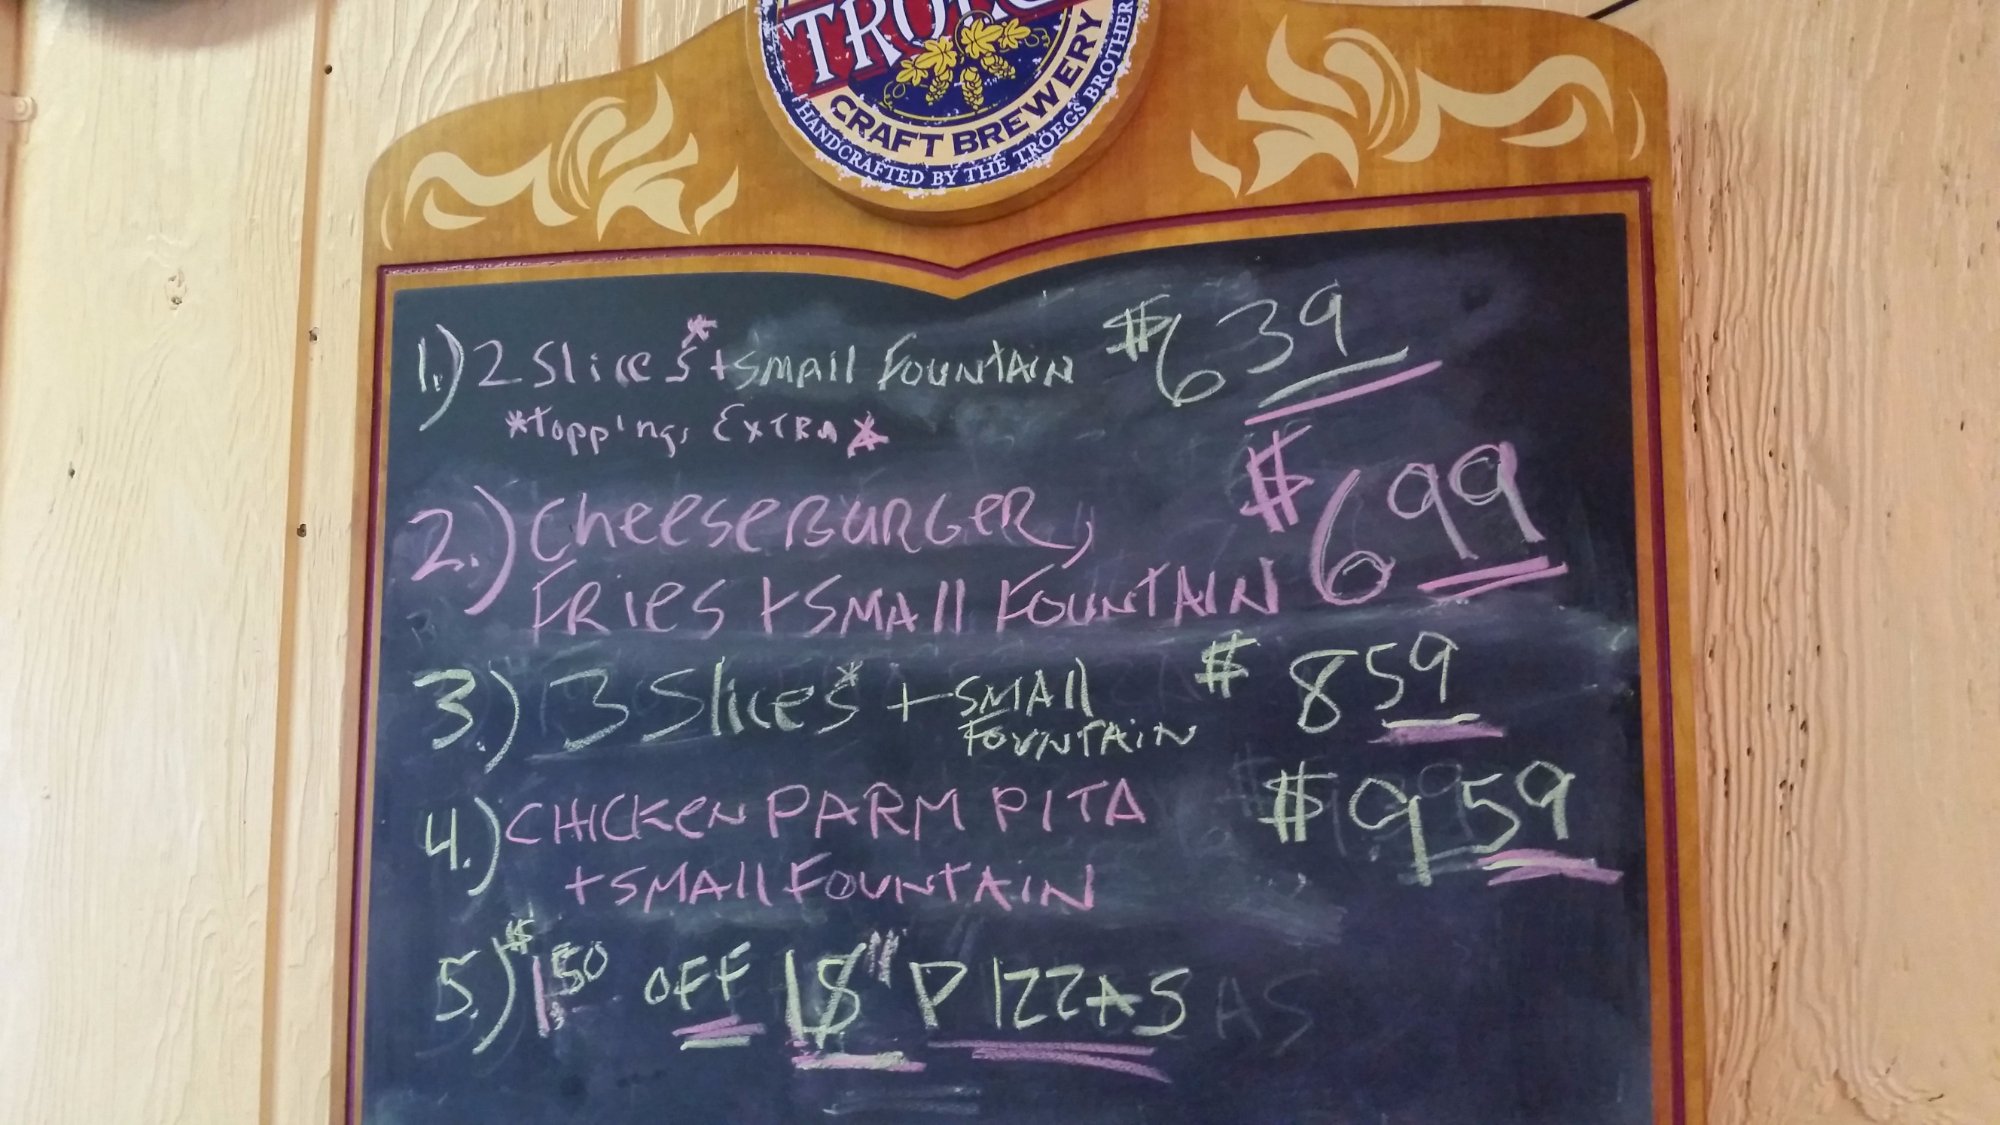 TRÖEGS
CRAFT BREWERY
HANDCRAFTED BY THE TRÖEGS BROTHER
1.) 2 Slices* + SMAll FOUNTAIN $6 39
*toppings EXTRA*
2.) CheeseBURGeR, $6 99
FRieS + SMAll FOUNTAIN
3.) 3 Slices* + SMAll $8 59
FOUNTAiN
4.) CHICKeN PARM PITA $9 59
+ SMAll FOUNTAIN
5.) $1.50 OFF 18" PIZZAS